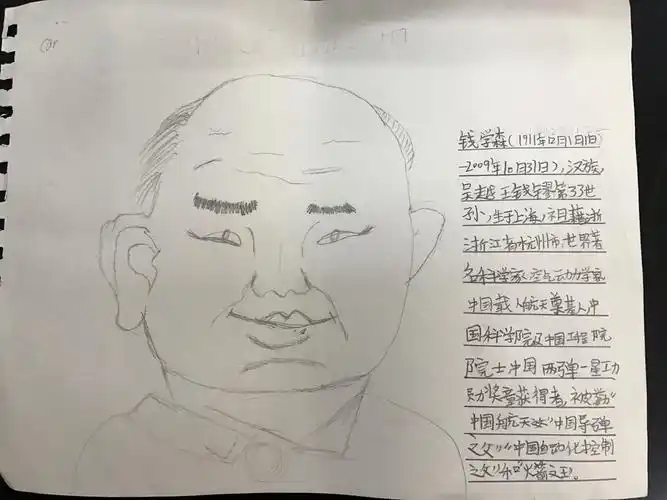 钱学森(1911年12月11日
-2009年10月31日),汉族,
吴越王钱镠第33世
孙,生于上海,祖籍浙
浙江省杭州市,世界著
名科学家,空气动力学家
中国载人航天奠基人,中
国科学院及中国工程院
院士,中国两弹一星功
勋奖章获得者,被誉为“
中国航天之父”“中国导弹
之父”“中国自动化控制
之父”和“火箭之王”。